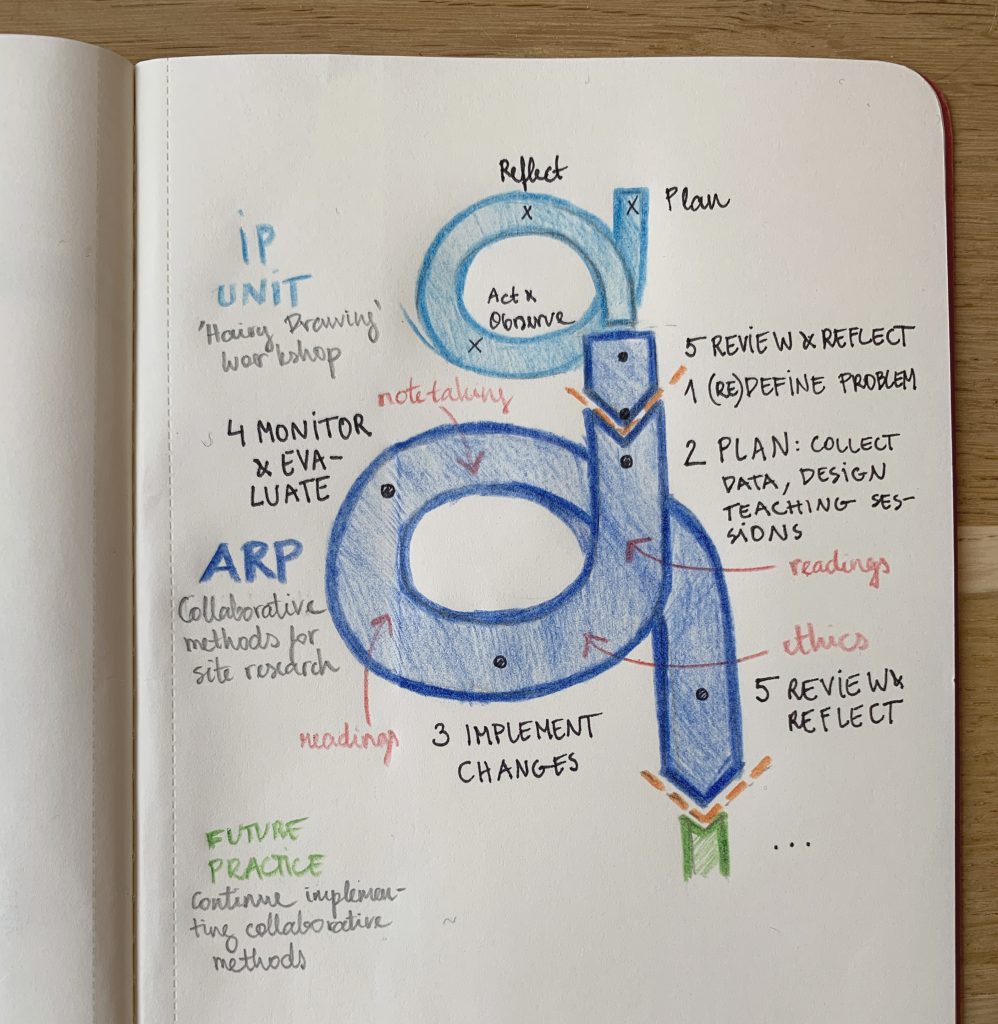 Reflect
Plan
x
x
Act &
Observe
x
iP
UNIT
'Hairy Drawing'
workshop
5 REVIEW & REFLECT
1 (RE)DEFINE PROBLEM
notetaking
4 MONITOR
& EVA-
LUATE
2 PLAN: COLLECT
DATA, DESIGN
TEACHING SES-
SIONS
ARP
Collaborative
methods for
site research
readings
ethics
5 REVIEW &
REFLECT
readings
3 IMPLEMENT
CHANGES
FUTURE
PRACTICE
continue implemen-
ting collaborative
methods
...